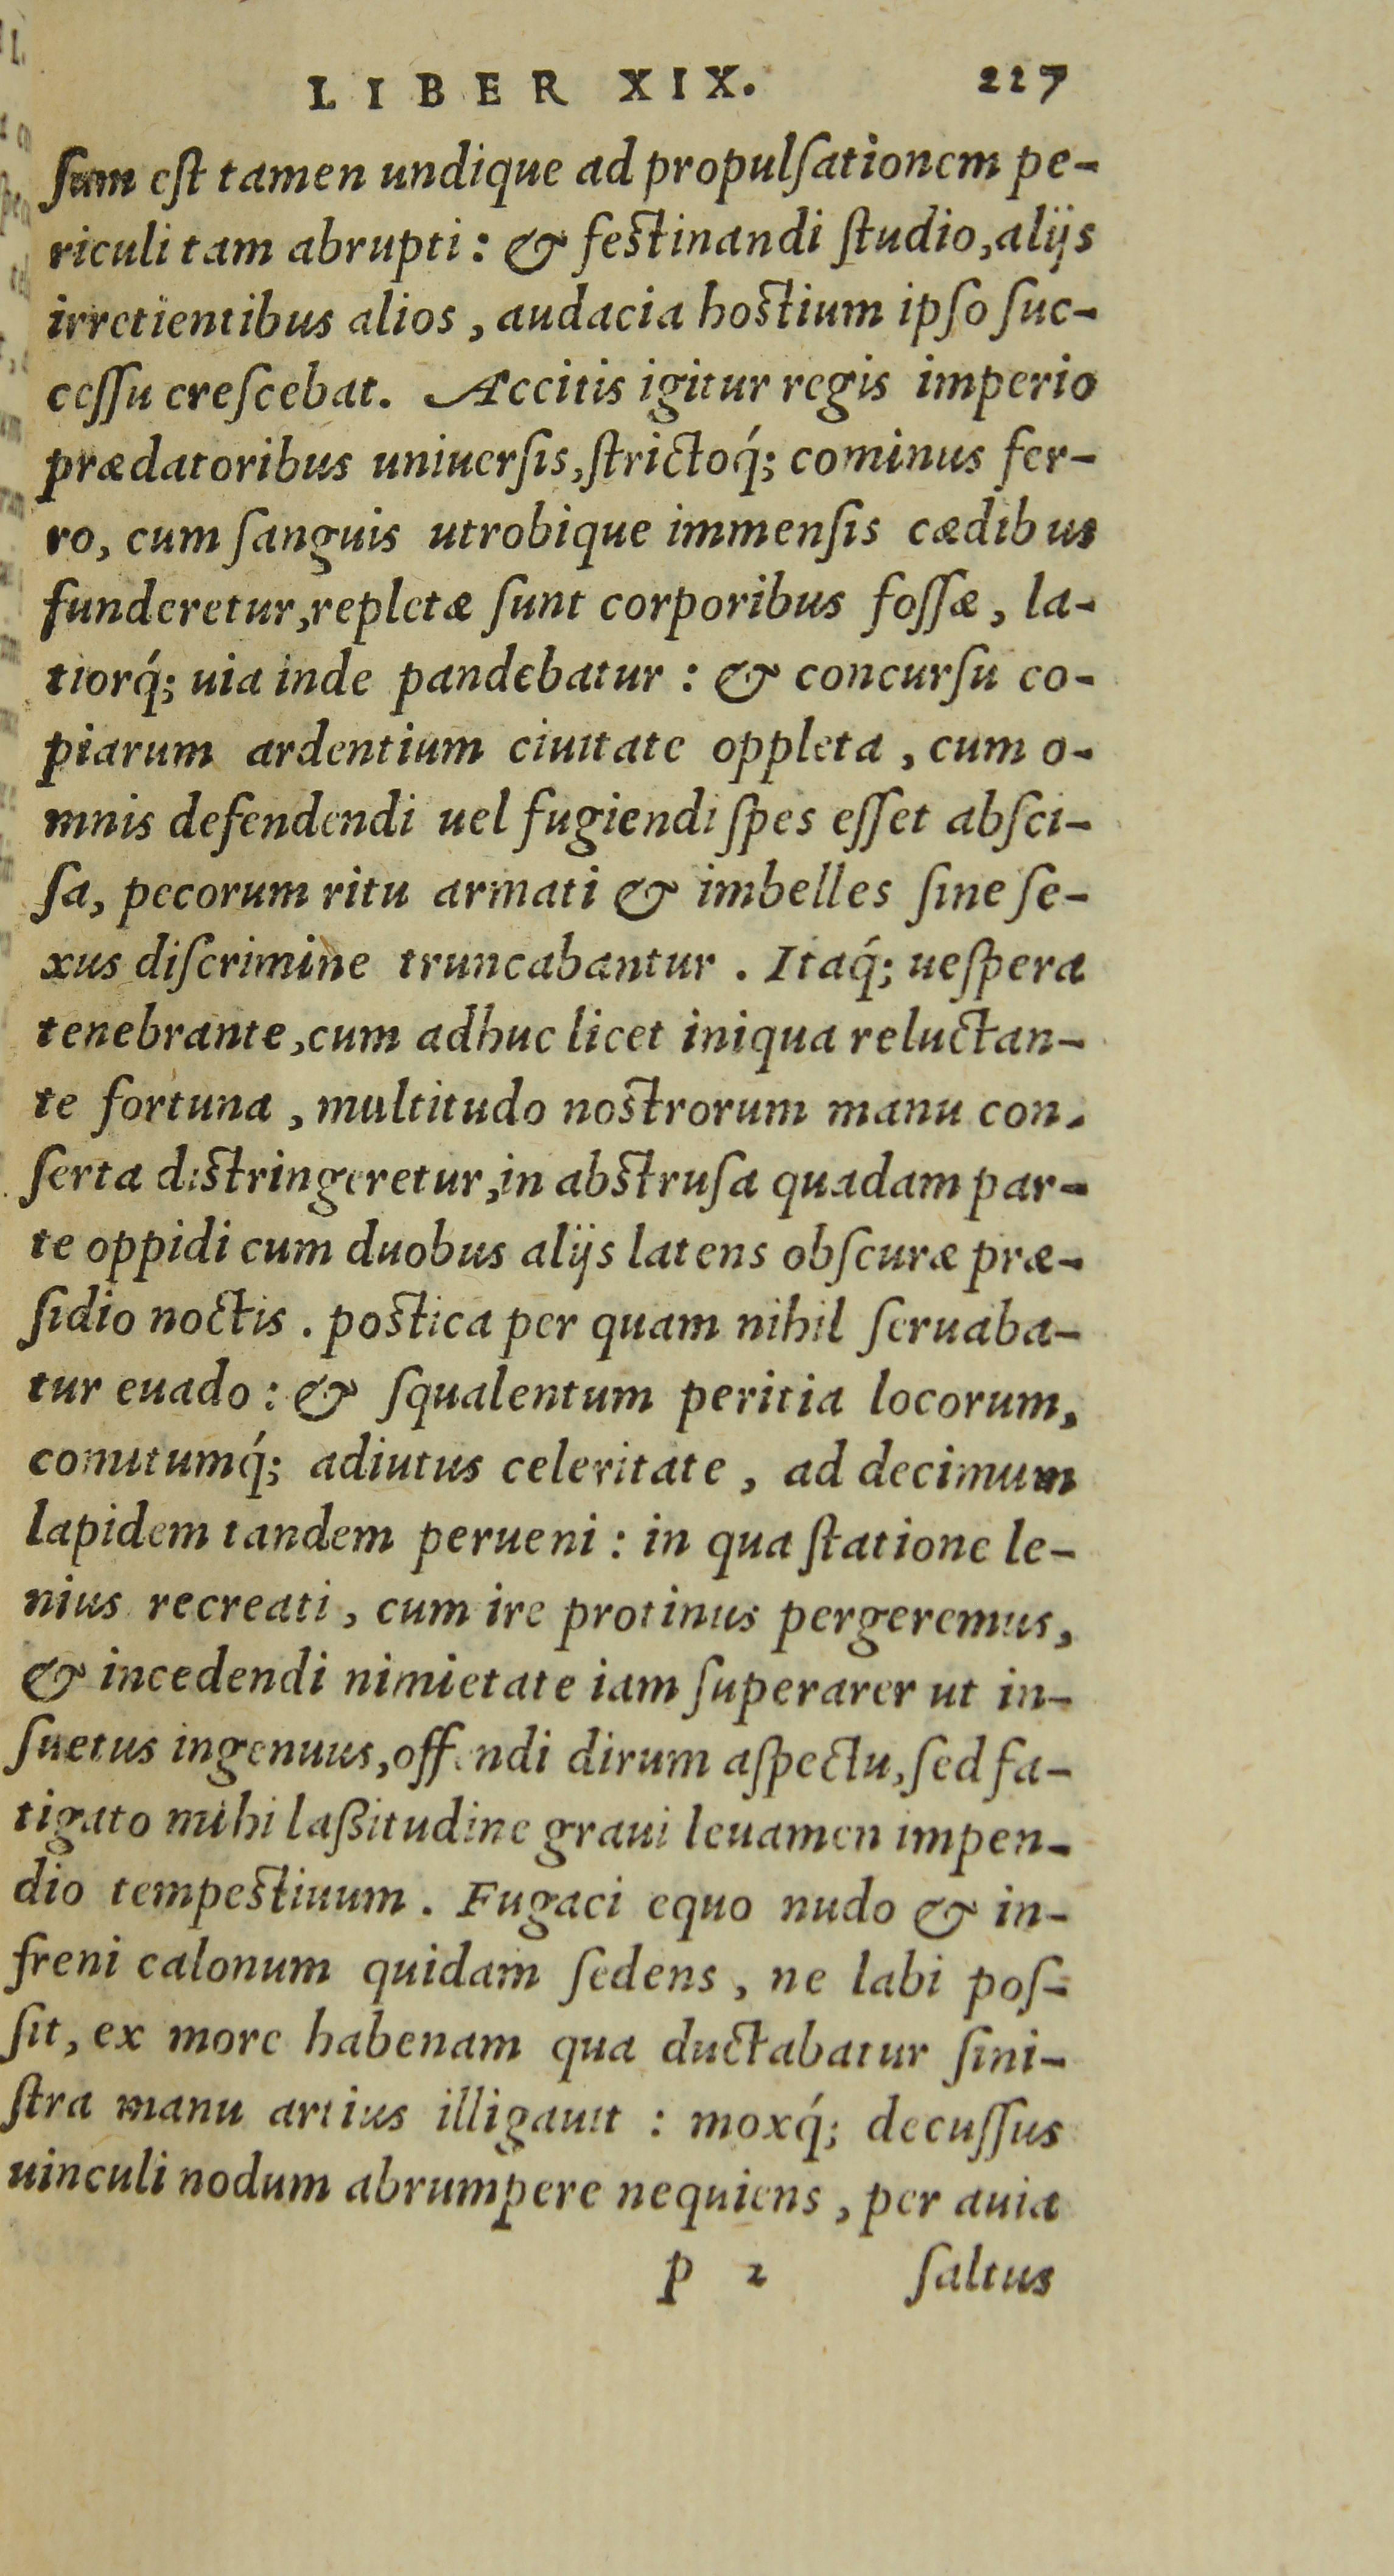 LIBER XIX. 227
ſum eſt tamen undique ad propulſationem pe-
riculi tam abrupti: & feſtinandi ſtudio, alijs
irretientibus alios, audacia hoſtium ipſo ſuc-
ceſſu creſcebat. Accitis igitur regis imperio
prædatoribus uniuerſis, ſtrictoq́; cominus fer-
ro, cum ſanguis utrobique immenſis cædibus
funderetur, repletæ ſunt corporibus foſſæ, la-
tiorq́; uia inde pandebatur: & concurſu co-
piarum ardentium ciuitate oppleta, cum o-
mnis defendendi uel fugiendi ſpes eſſet abſci-
ſa, pecorum ritu armati & imbelles ſine ſe-
xus diſcrimine truncabantur. Itaq́; ueſpera
tenebrante, cum adhuc licet iniqua reluctan-
te fortuna, multitudo noſtrorum manu con-
ſerta diſtringeretur, in abſtruſa quadam par-
te oppidi cum duobus alijs latens obſcuræ præ-
ſidio noctis. poſtica per quam nihil ſeruaba-
tur euado: & ſqualentum peritia locorum,
comitumq́; adiutus celeritate, ad decimum
lapidem tandem perueni: in qua ſtatione le-
nius recreati, cum ire protinus pergeremus,
& incedendi nimietate iam ſuperarer ut in-
ſuetus ingenuus, offendi dirum aſpectu, ſed fa-
tigato mihi laßitudine graui leuamen impen-
dio tempeſtiuum. Fugaci equo nudo & in-
freni calonum quidam ſedens, ne labi poſ-
ſit, ex more habenam qua ductabatur ſini-
ſtra manu artius illigauit: moxq́; decuſſus
uinculi nodum abrumpere nequiens, per auia
p 2 ſaltus